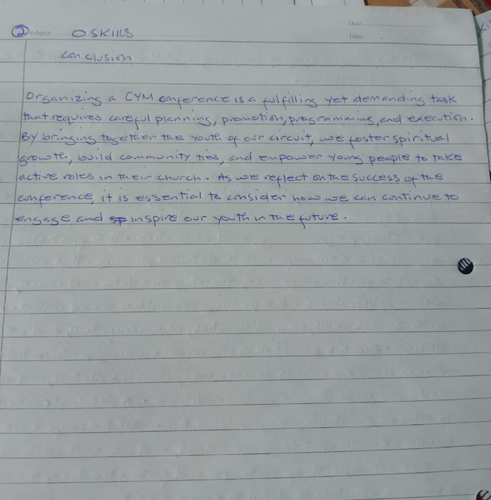 ② Subject O SKILLS
Date:
Date:
conclusion
Organizing a CYM conference is a fulfilling yet demanding task
that requires careful planning, promotion, programming, and execution.
By bringing together the youth of our circuit, we foster spiritual
growth, build community ties, and empower young people to take
active roles in their church. As we reflect on the success of the
conference, it is essential to consider how we can continue to
engage and sp inspire our youth in the future.